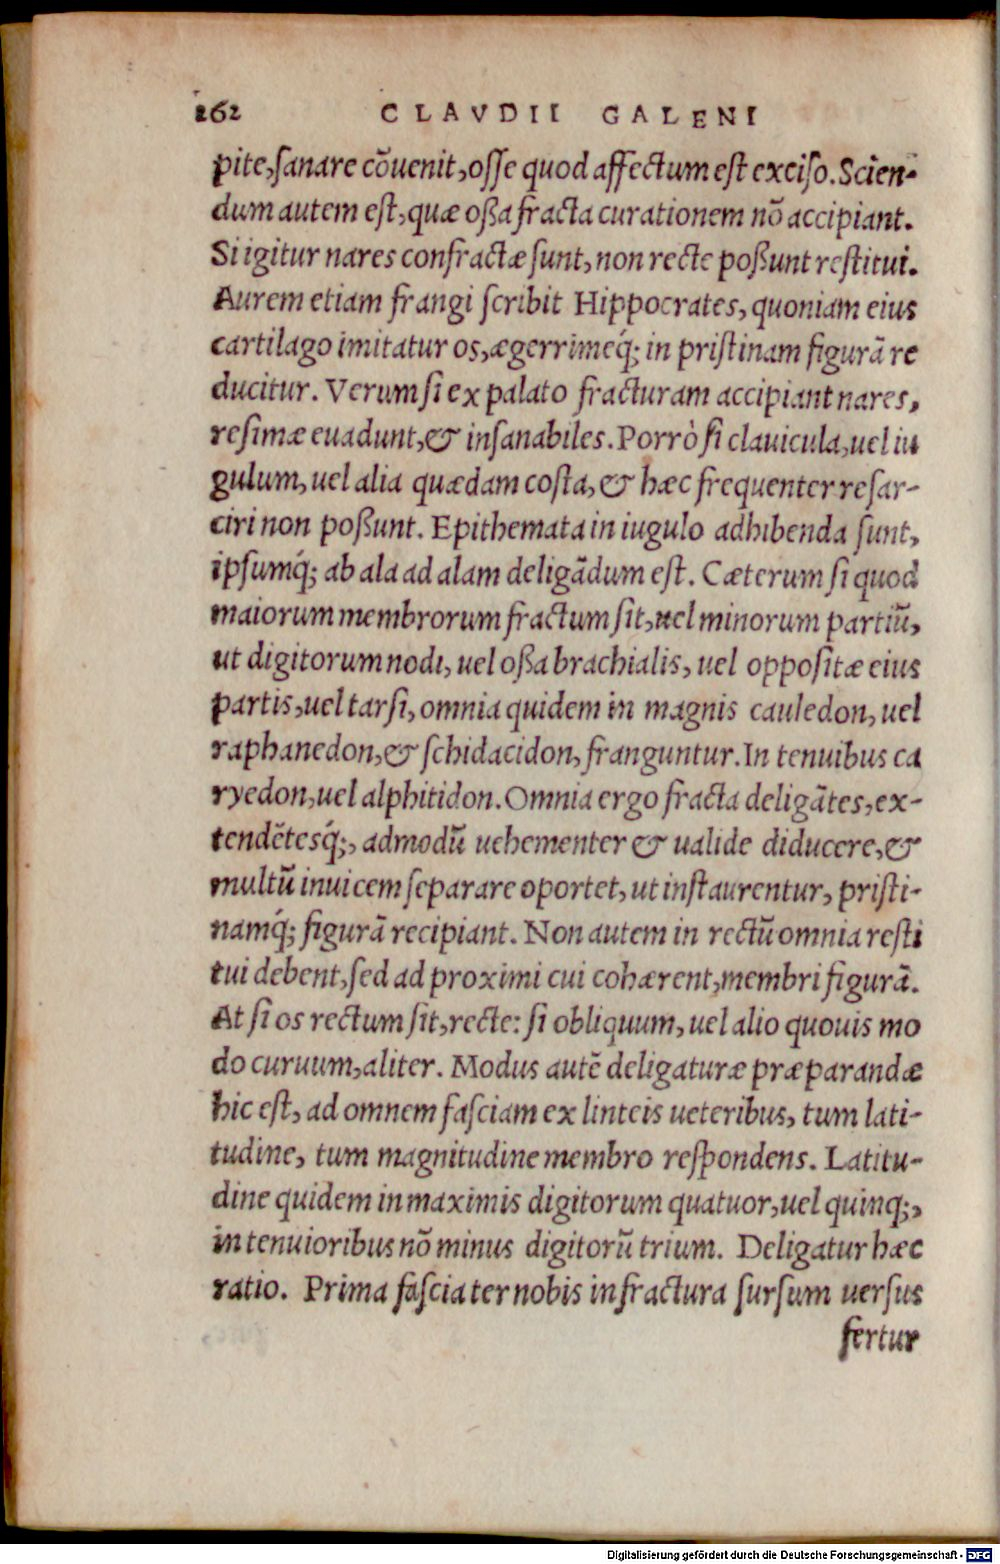 262 CLAVDII GALENI
pite, sanare cõuenit, osse quod affectum est exciso. Scien-
dum autem est, quæ oßa fracta curationem nõ accipiant.
Si igitur nares confractæ sunt, non recte poßunt restitui.
Aurem etiam frangi scribit Hippocrates, quoniam eius
cartilago imitatur os, ægerrimeq́; in pristinam figurã re
ducitur. Verum si ex palato fracturam accipiant nares,
resimæ euadunt, & insanabiles. Porrò si clauicula, uel iu
gulum, uel alia quædam costa, & hæc frequenter resar-
ciri non poßunt. Epithemata in iugulo adhibenda sunt,
ipsumq́; ab ala ad alam deligãdum est. Cæterum si quod
maiorum membrorum fractum sit, uel minorum partiũ,
ut digitorum nodi, uel oßa brachialis, uel oppositæ eius
partis, uel tarsi, omnia quidem in magnis cauledon, uel
raphanedon, & schidacidon, franguntur. In tenuibus ca
ryedon, uel alphitidon. Omnia ergo fracta deligãtes, ex-
tendẽtesq́;, admodũ uehementer & ualide diducere, &
multũ inuicem separare oportet, ut instaurentur, pristi-
namq́; figurã recipiant. Non autem in rectũ omnia resti
tui debent, sed ad proximi cui cohærent, membri figurã.
At si os rectum sit, recte: si obliquum, uel alio quouis mo
do curuum, aliter. Modus autẽ deligaturæ præparandæ
hic est, ad omnem fasciam ex linteis ueteribus, tum lati-
tudine, tum magnitudine membro respondens. Latitu-
dine quidem in maximis digitorum quatuor, uel quinq;,
in tenuioribus nõ minus digitorũ trium. Deligatur hæc
ratio. Prima fascia ter nobis in fractura sursum uersus
fertur
Digitalisierung gefördert durch die Deutsche Forschungsgemeinschaft - DFG